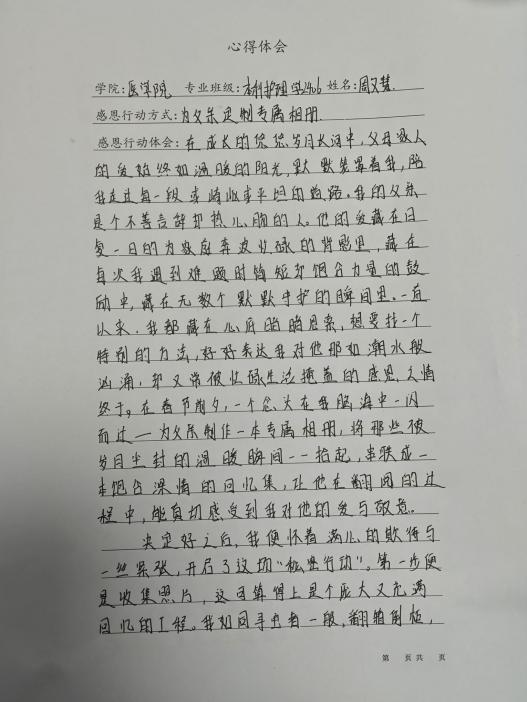 心得体会
学院:医学院 专业班级:本科护理学2406 姓名:周文慧
感恩行动方式:为父亲定制专属相册.
感恩行动体会:在成长的悠悠岁月长河中,父母双人
的爱始终如温暖的阳光,默默笼罩着我,陪
我走过每一段崎岖平坦的道路.我的父亲
是个不善言辞却热心肠的人。他的爱藏在日
复一日的为家庭奔波忙碌的背影里,藏在
每次我遇到难题时简短却饱含力量的鼓
励中,藏在无数个默默守护的瞬间里.一直
以来.我都藏在心底暗暗思索,想要找一个
特别的方法,好好表达我对他那如潮水般
汹涌,却又常被忙碌生活掩盖的感恩之情
终于。在春节前夕,一个念头在我脑海中一闪
而过—为父亲制作一本专属相册,将那些被
岁月尘封的温暖瞬间一一拾起,串联成一
本饱含深情的回忆集,让他在翻阅的过
程中,能真切感受到我对他的爱与敬意。
决定好之后,我便怀着满心的欢待与
一丝紧张,开启了这场“秘密行动”。第一步便
是收集照片,这可算得上是个庞大又充满
回忆的工程。我如同寻宝者一般,翻箱倒柜,
第 页共 页